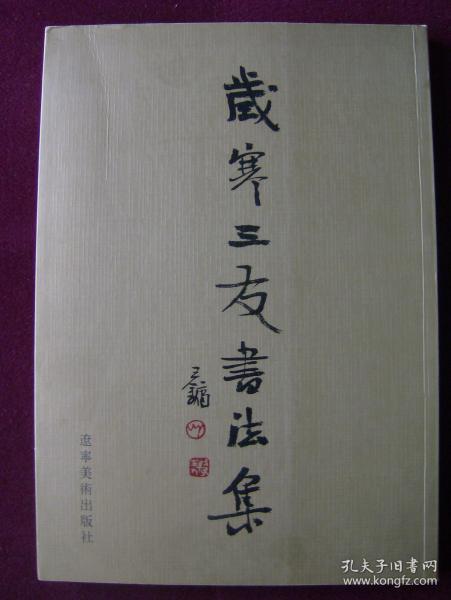 歲寒三友書法集
三鏞
遼寧美術出版社
孔夫子旧书网
www.kongfz.com